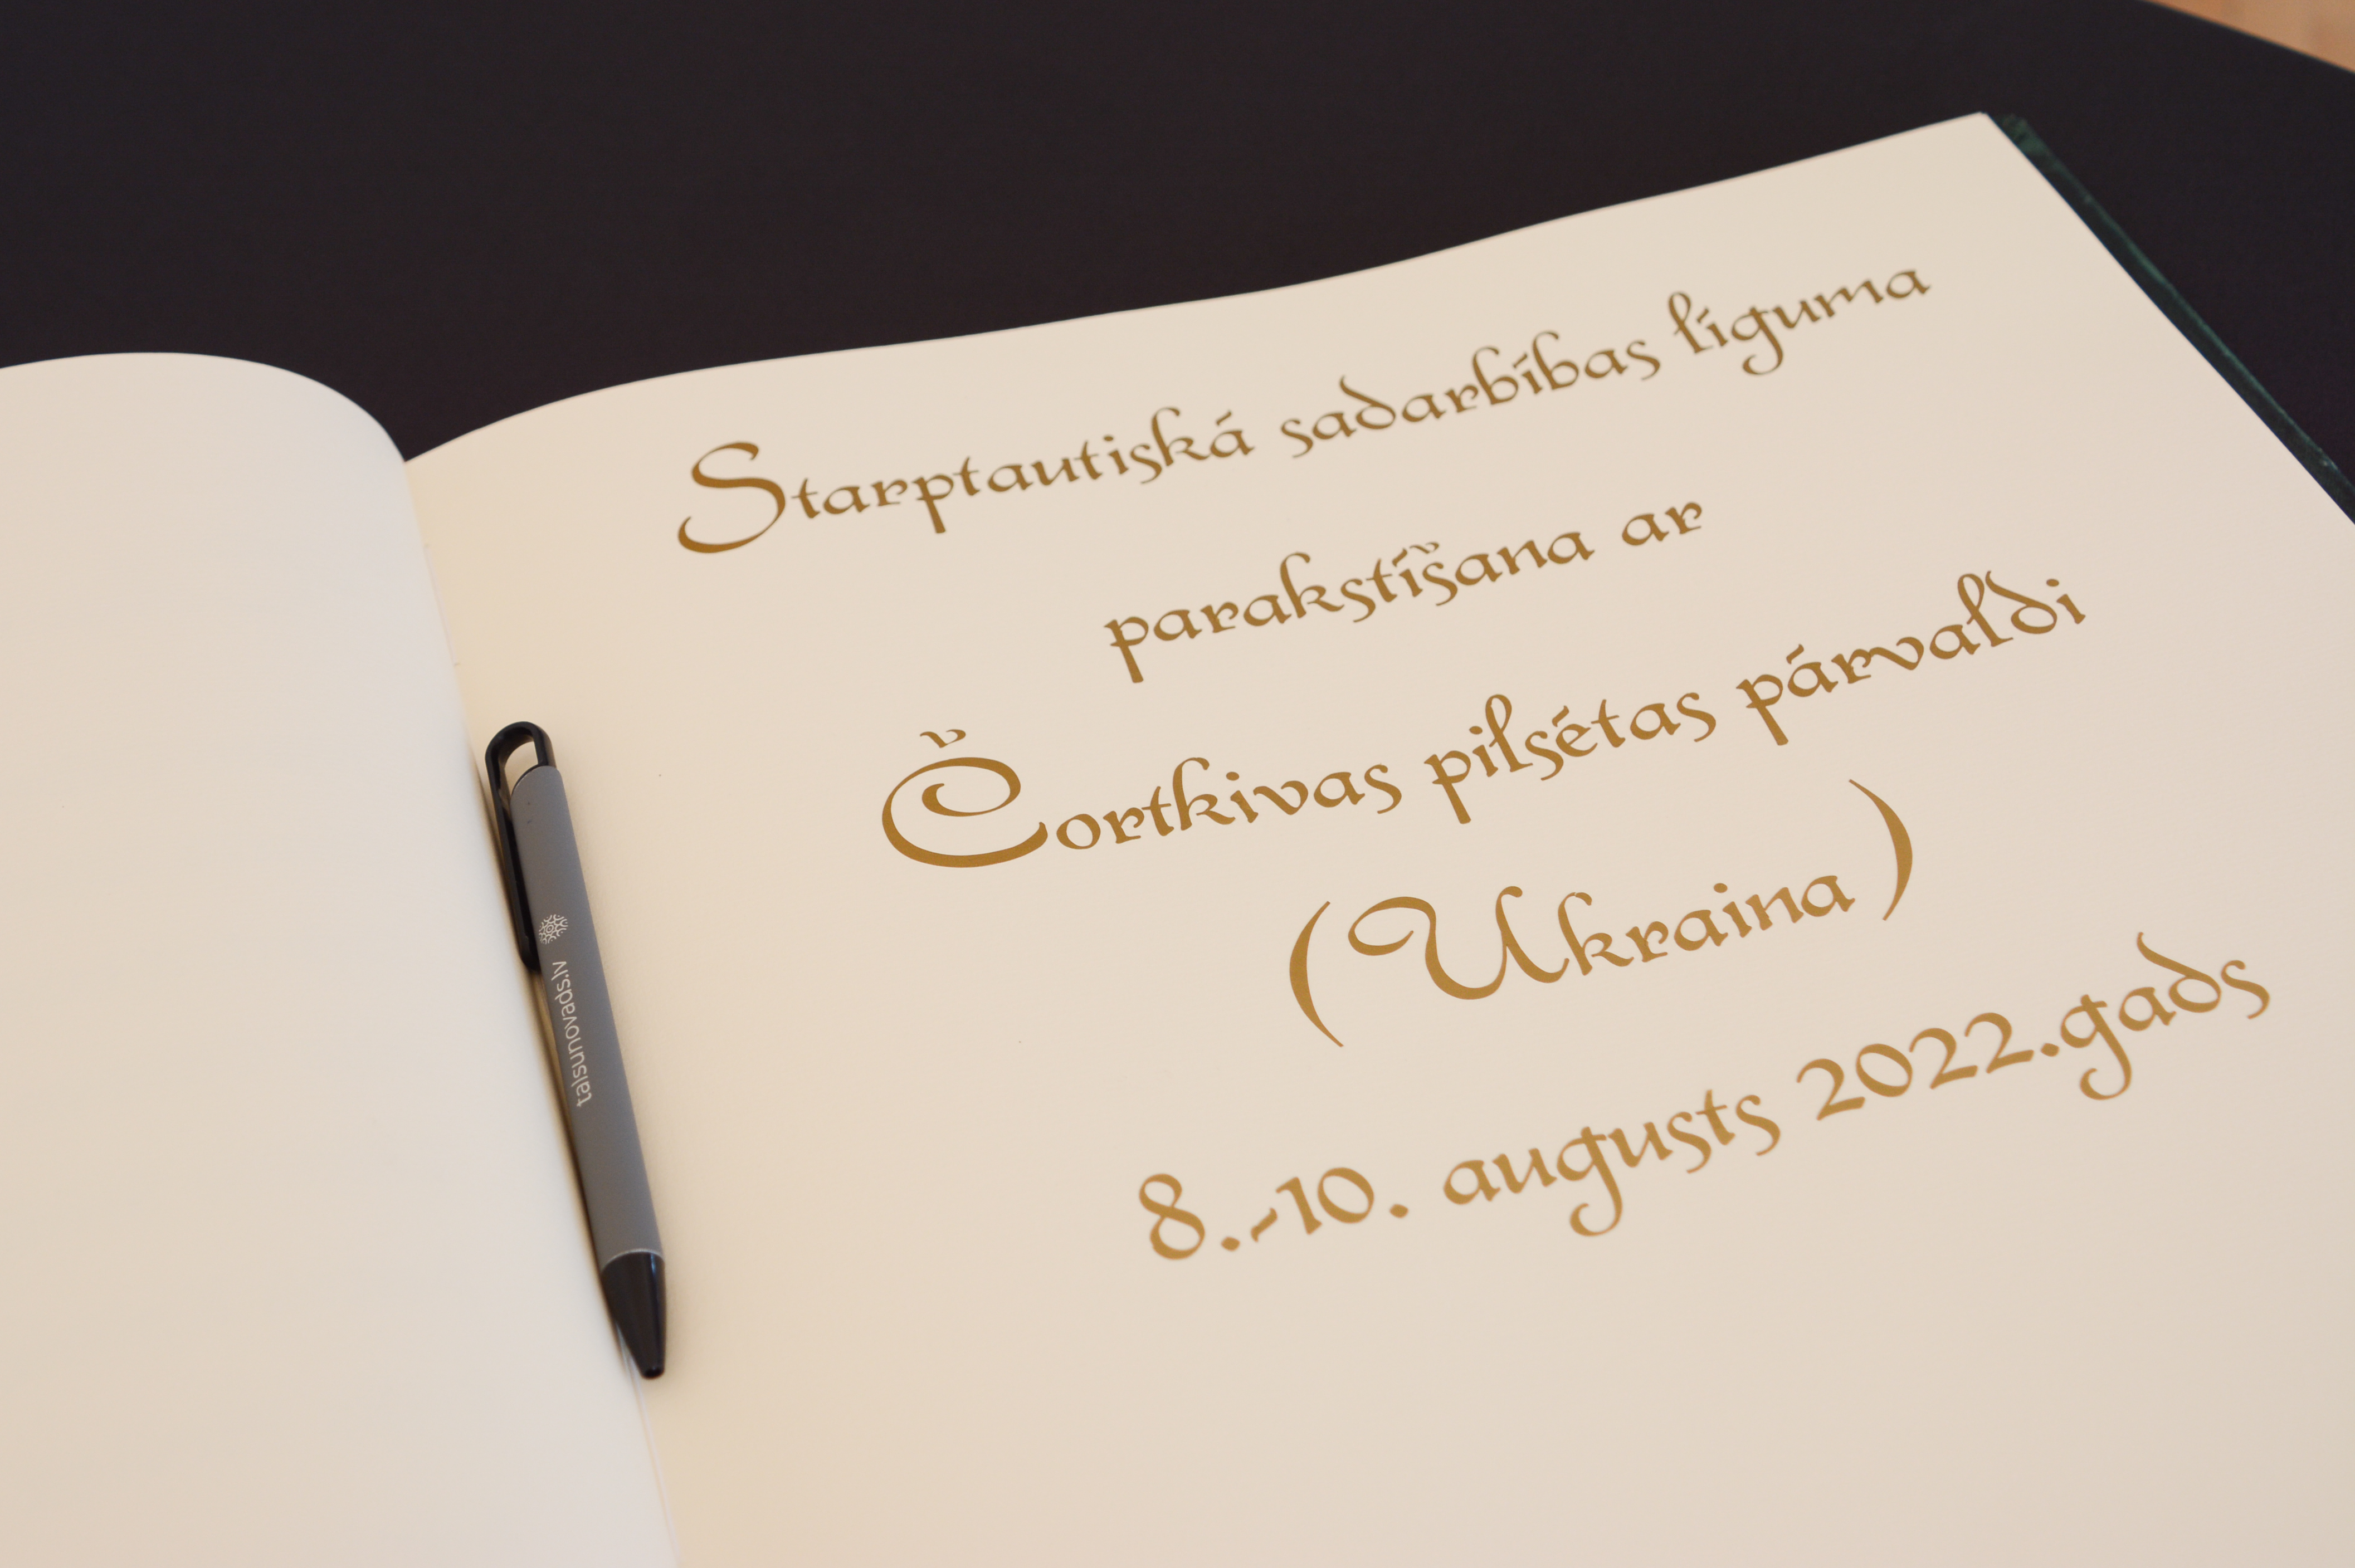 Starptautiská sadarbíbas líguma
parakstíšana ar
Čortkivas pilsétas párvaldi
(Ukraina)
8.-10. augusts 2022.gads
talsunovads.lv